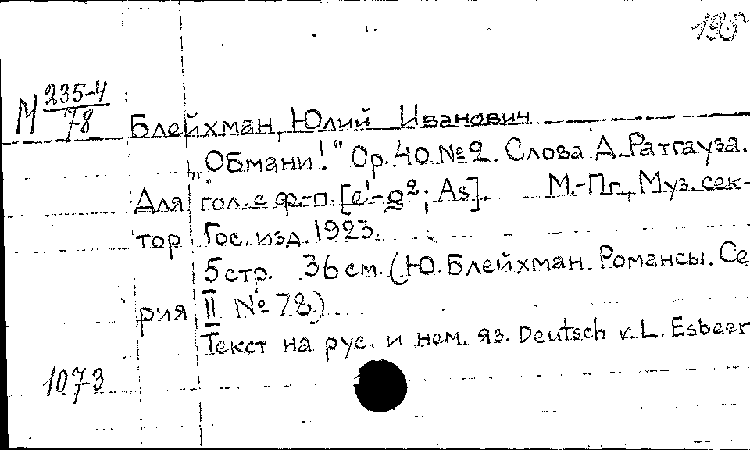 195
М 235-4
78
Блейхман, Юлий Иванович
„Обмани!" Ор. 40 № 2. Слова Д. Ратгауза.
Для гол. с ф.-п. [e¹-g²; As]. М.-Пг., Муз. сек-
тор Гос. изд. 1923.
5 стр. 36 см. (Ю. Блейхман. Романсы. Се
рия II № 78.)
Текст на рус. и нем. яз. Deutsch v. L. Esbeer
1073